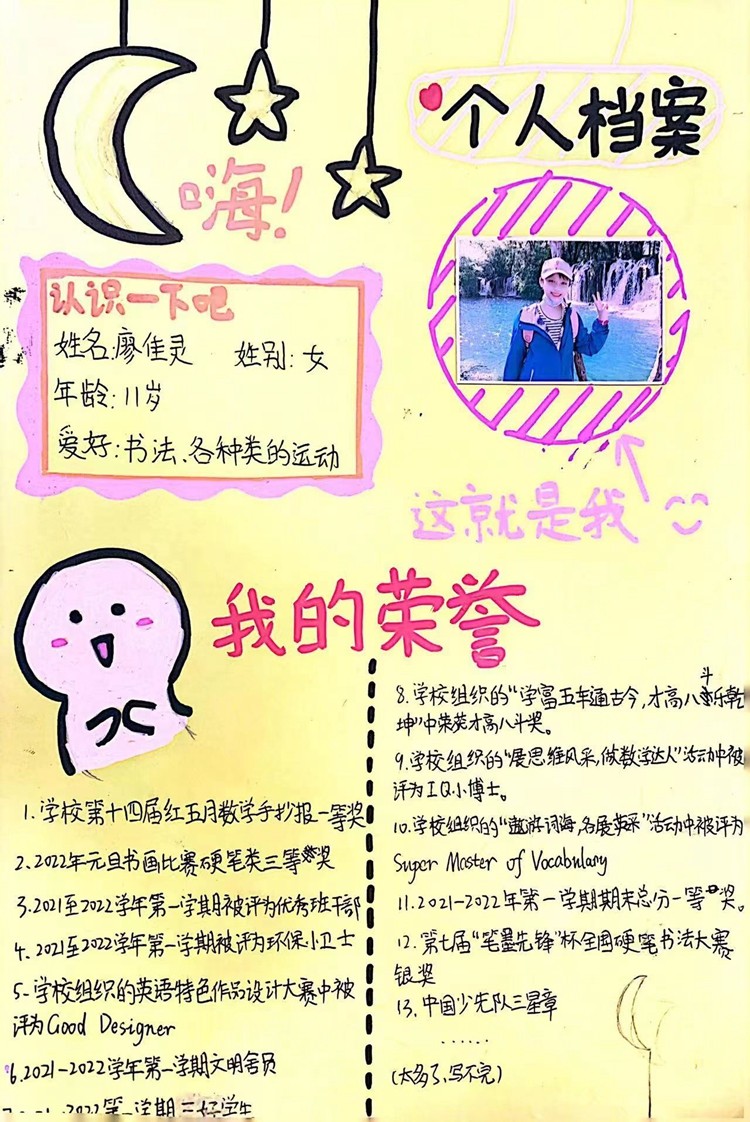 个人档案
嗨!
认识一下吧
姓名:廖佳灵 姓别:女
年龄:11岁
爱好:书法、各种类的运动
这就是我
我的荣誉
1.学校第十四届红五月数学手抄报一等奖
2.2022年元旦书画比赛硬笔类三等奖
3.2021至2022学年第一学期被评为优秀班干部
4.2021至2022学年第一学期被评为环保小卫士
5-学校组织的英语特色作品设计大赛中被
评为Good Designer
6.2021-2022学年第一学期文明舍员
2021-2022第一学期三好学生
8.学校组织的“学富五车通古今,才高八斗乐乾
坤”中荣获才高八斗奖。
9.学校组织的“展思维风采,做数学达人”活动中被
评为IQ小博士。
10.学校组织的“遨游词海,名展英采”活动中被评为
Super Master of Vocabulary
11.2021-2022年第一学期期末总分一等奖。
12.第七届“笔墨先锋”杯全国硬笔书法大赛
银奖
13.中国少先队三星章
......
(太多了,写不完)